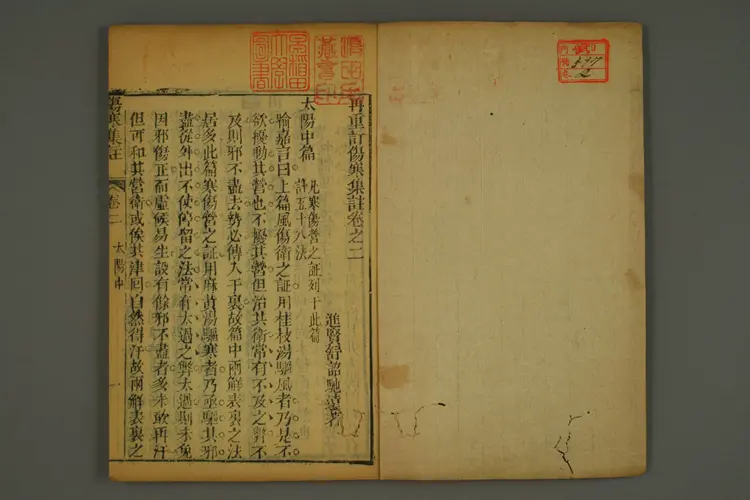 再重訂傷寒集註卷之二
進賢舒詔馳遠著
太陽中篇
凡寒傷營之証列于此篇
計五十八法
喻嘉言曰上篇風傷衛之証用桂枝湯驅風者乃是不
欲擾動其營也不擾其營但治其衛當有不及之弊不
及則邪不盡去勢必傳入于裏故篇中兩解表裏之法
居多此篇寒傷營之証用麻黃湯驅寒者乃亟驅其邪
盡從外出不使停留之法當有太過之弊太過則未免
因邪傷正而虛候易生設有餘邪不盡者多未敢再汗
但可和其營衛或俟其津回自然得汗故兩解表裏之
傷寒集註
卷二
太陽中
2